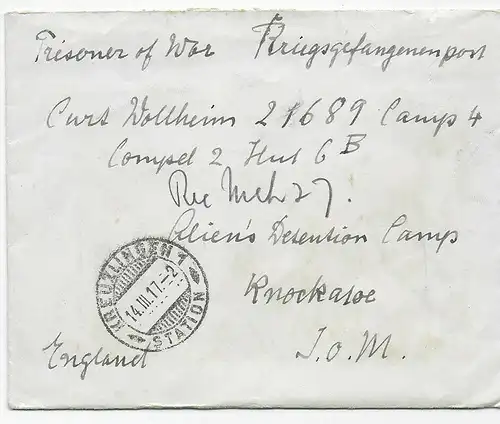 Prisoner of War Kriegsgefangenenpost
Curt Wollheim 21689 Camp 4
Compel 2 Hut 6B
Rec Mch 27.
Alien's Detention Camp
Knockaloe
I.o.M.
England
KREUZLINGEN 1
14.III.17.-2
STATION